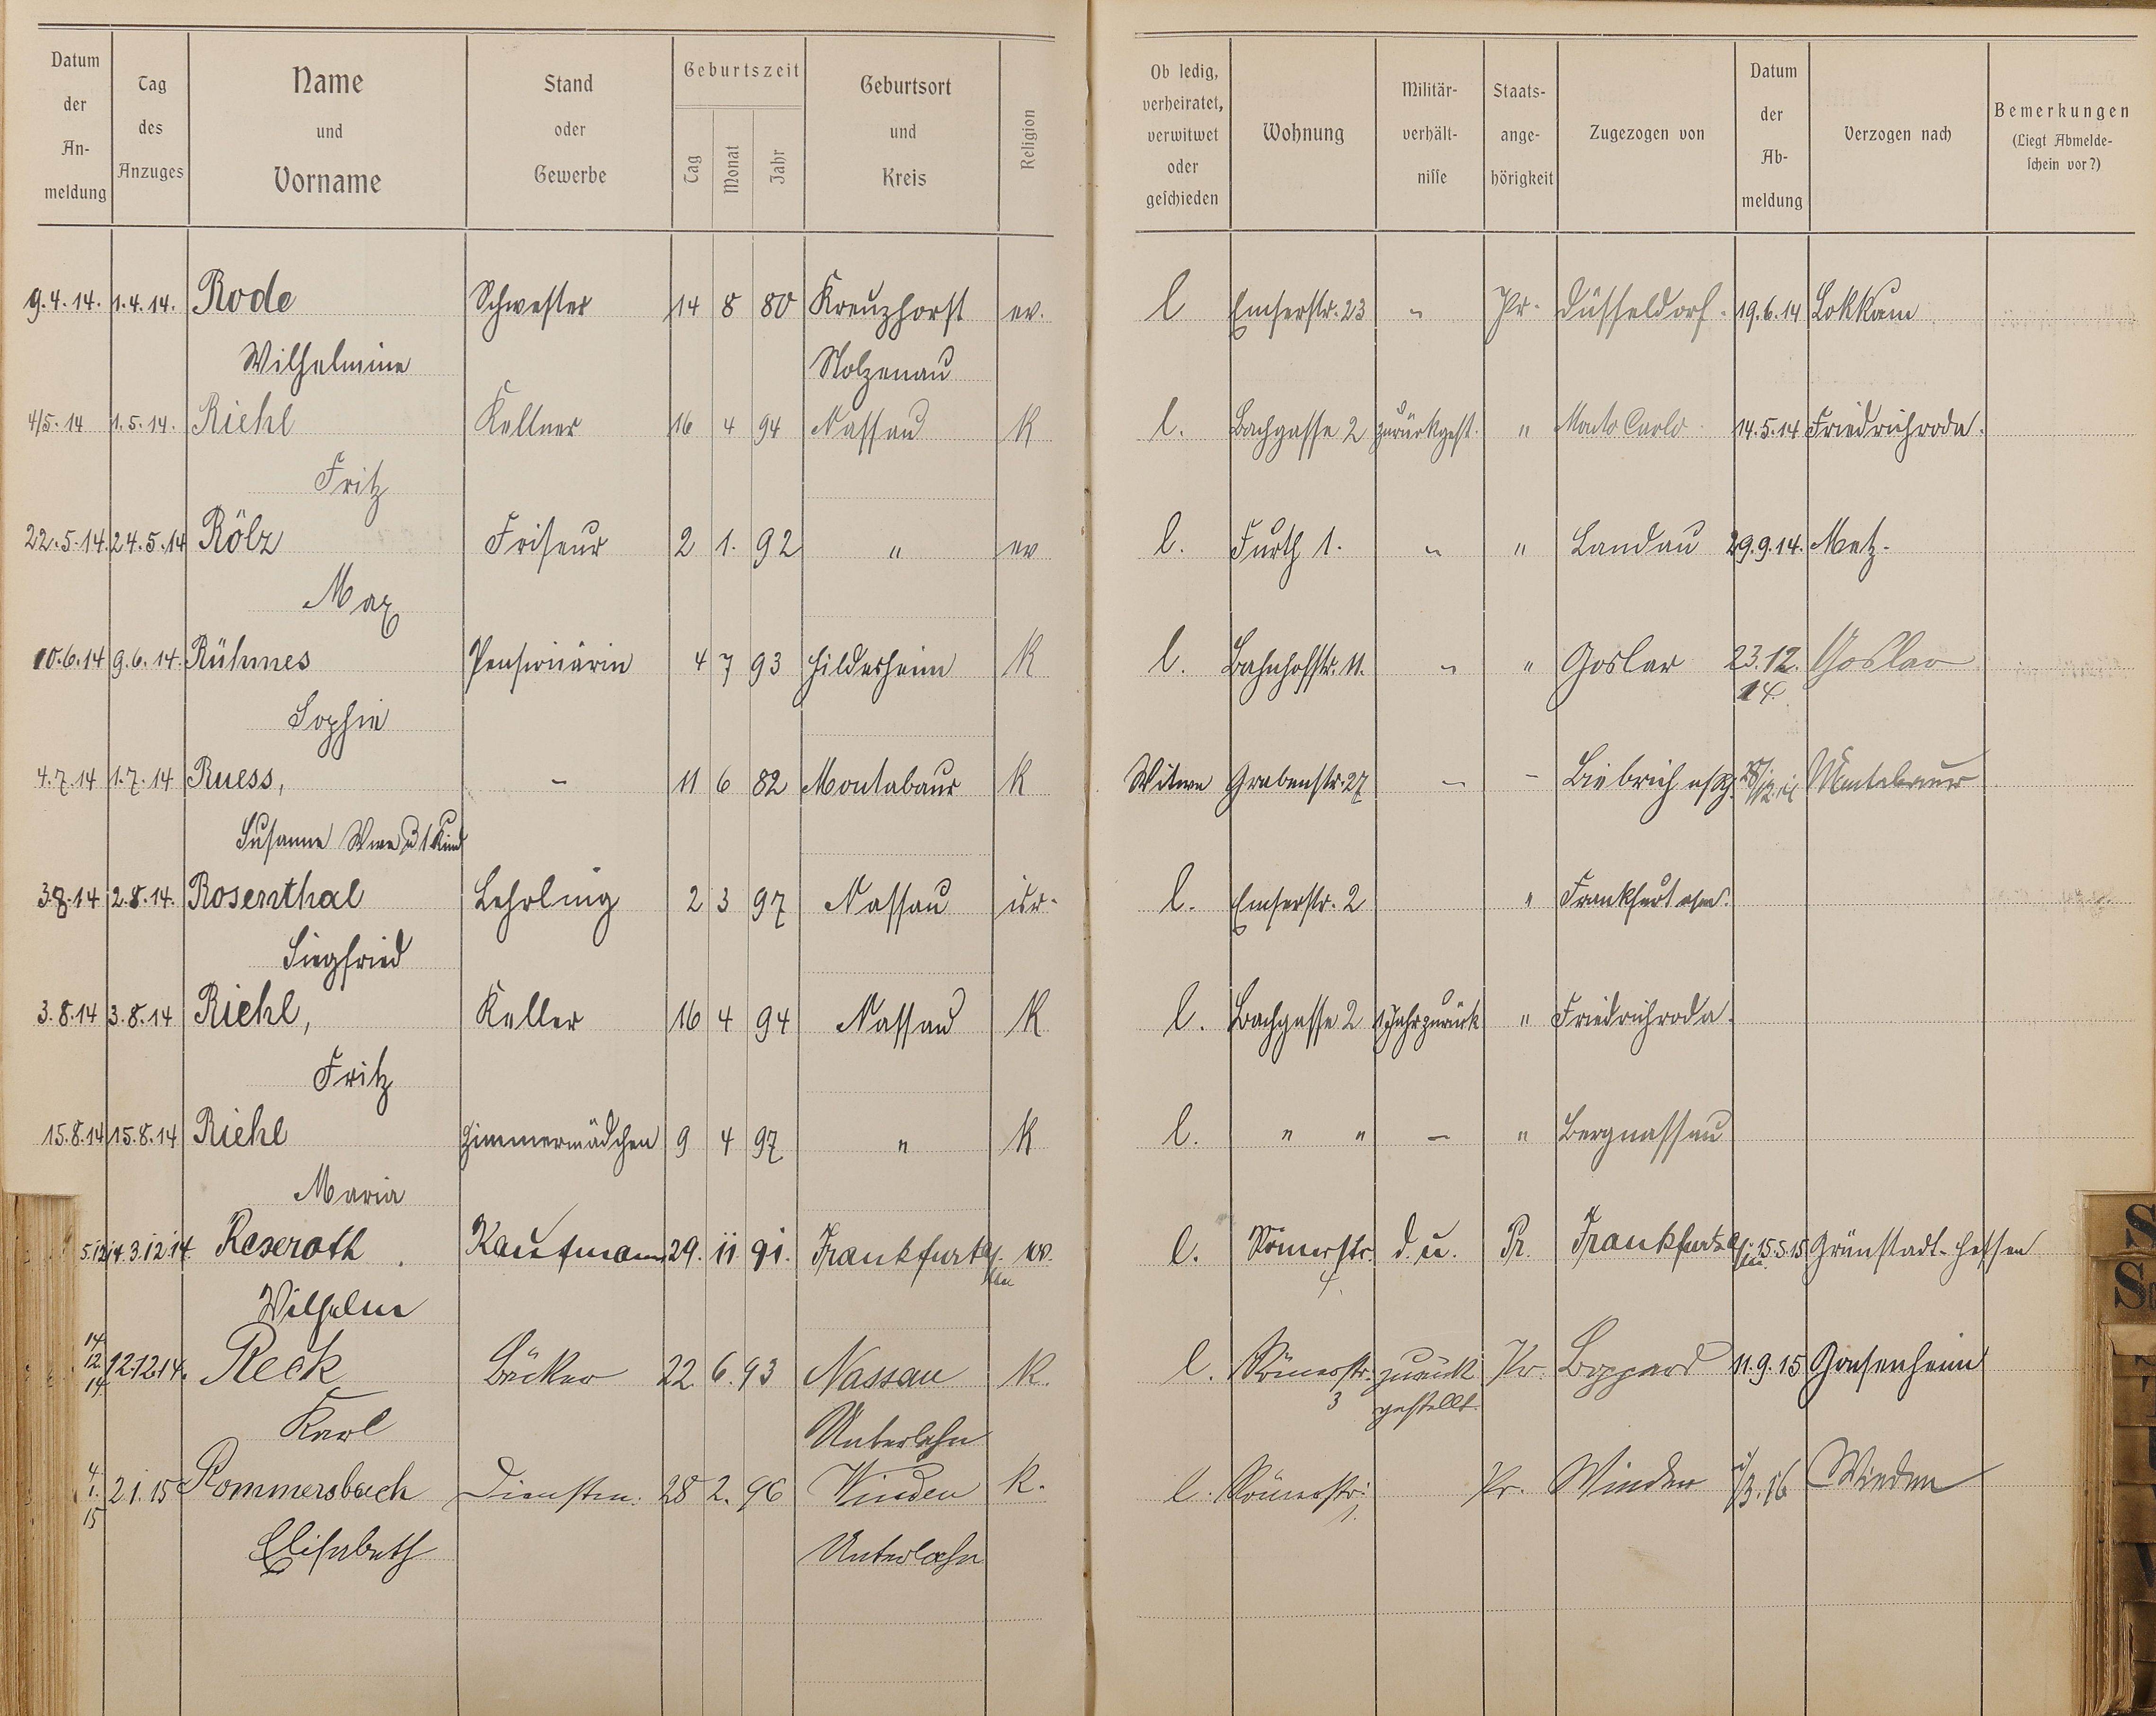 Datum der Anmeldung | Tag des Anzuges | Name und Vorname | Stand oder Gewerbe | Geburtszeit Tag Monat Jahr | Geburtsort und Kreis | Religion | Ob ledig, verheiratet, verwitwet oder geschieden | Wohnung | Militärverhältnisse | Staatsangehörigkeit | Zugezogen von | Datum der Abmeldung | Verzogen nach | Bemerkungen (Liegt Abmeldeschein vor?)
9.4.14. 1.4.14. Rode Schwester 14 8 80 Kreuzhorst ev. l Emserstr. 23 " Pr. Düsseldorf. 19.6.14 Lokkum
Wilhelmine Stolzenau
4/5.14 1.5.14. Riehl Kellner 16 4 94 Nassau K l. Bachgasse 2 zurückgest. " Monte Carlo 14.5.14 Friedrichroda.
Fritz
22.5.14. 24.5.14 Rölz Friseur 2 1. 92 " ev l. Furth 1. " " Landau 29.9.14. Metz.
Max
10.6.14 9.6.14. Rühmes Pensionärin 4 7 93 Hildesheim K l. Bahnhofstr. 11. " " Goslar 23.12.14 Goslar
Sophie
4.7.14 1.7.14 Ruess, – 11 6 82 Montabaur K Witwe Grabenstr. 27 – – Biebrich a/Rh. Montabaur
Susanne Wwe u 1 Kind
3.8.14 2.8.14. Rosenthal Lehrling 2 3 97 Nassau isr. l. Emserstr. 2 " Frankfurt a/m.
Siegfried
3.8.14 3.8.14 Riehl, Keller 16 4 94 Nassau K l. Bachgasse 2 1 Jahr zurück " Friedrichroda.
Fritz
15.8.14 15.8.14 Riehl Zimmermädchen 9 4 97 " K l. " " – " Bergnassau
Maria
5.12.14. 3.12.14. Reseroth Kaufmann 29. 11. 91. Frankfurt a/m ev. l. Römerstr. 4. d.u. Pr. Frankfurt a/m 15.5.15 Grünstadt-Hessen
Wilhelm
14.12.14 12.12.14. Reck Bäcker 22 6. 93 Nassau K. l. Römerstr. 3 zurückgestellt. Pr. Boppard 11.9.15 Gonsenheim
Karl Unterlahn
4.1.15 2 1.15 Rommersbach Dienstm. 28 2. 96 Winden K. l. Römerstr. 1. Pr. Winden 1/3.16 Winden
Elisabeth Unterlahn